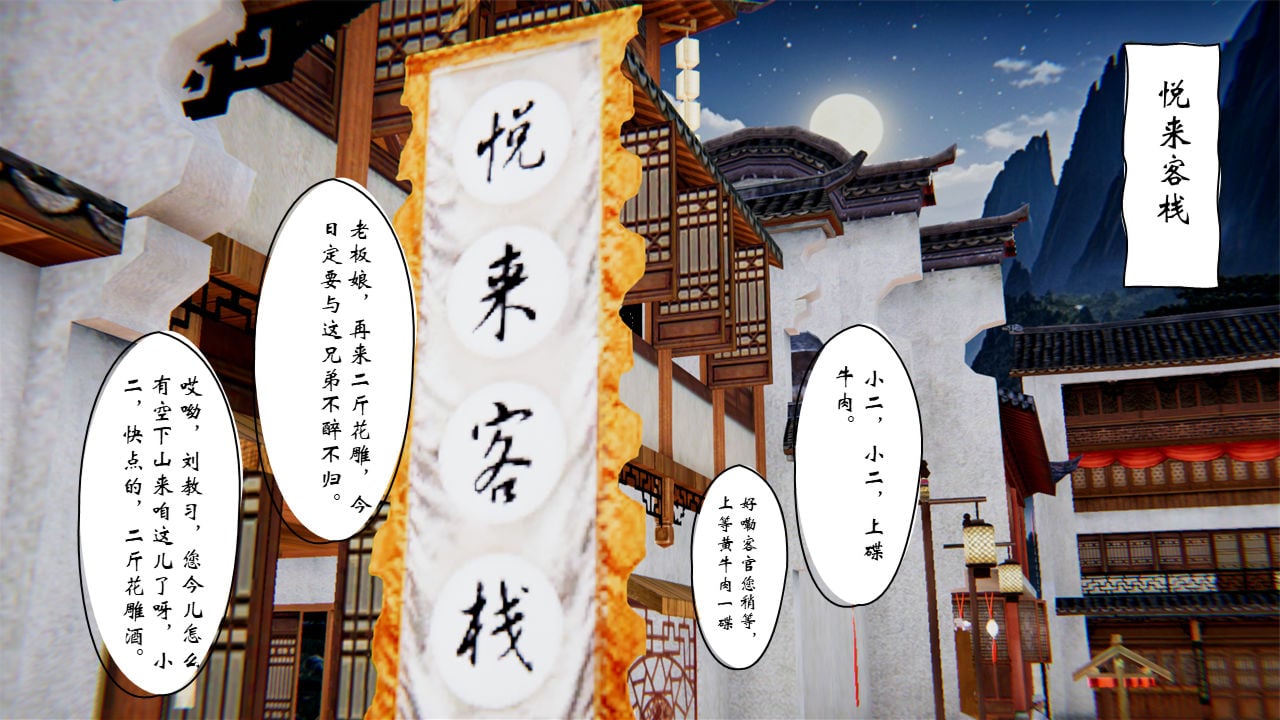 悦来客栈
小二，小二，上碟
牛肉。
好嘞客官您稍等，
上等黄牛肉一碟
悦来客栈
老板娘，再来二斤花雕，今
日定要与这兄弟不醉不归。
哎呦，刘教习，您今儿怎么
有空下山来咱这儿了呀，小
二，快点的，二斤花雕酒。